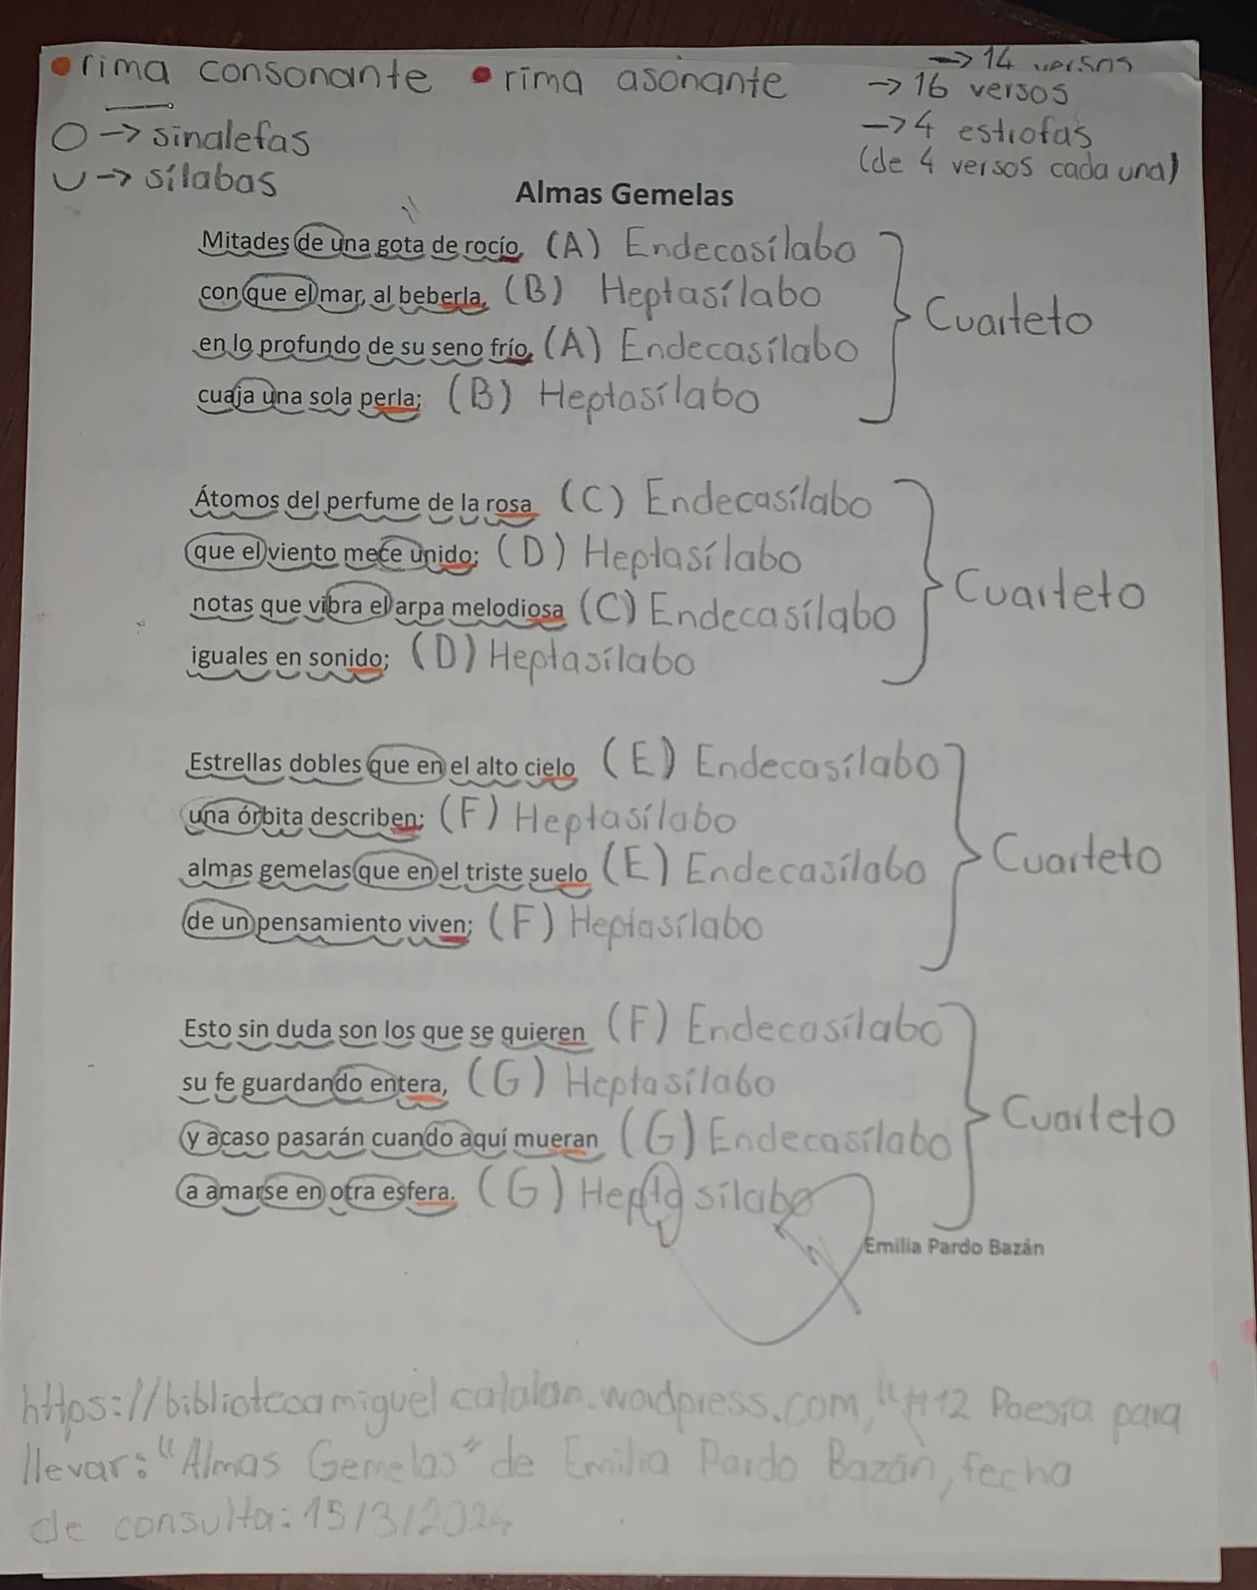 rima consonante rima asonante
→ 14 versos
→ 16 versos
→ 4 estrofas
(de 4 versos cada una)
→ sinalefas
→ sílabas
Almas Gemelas
Mitades de una gota de rocío, (A) Endecasílabo
con que el mar, al beberla, (B) Heptasílabo
en lo profundo de su seno frío, (A) Endecasílabo
cuaja una sola perla; (B) Heptasílabo
Cuarteto
Átomos del perfume de la rosa (C) Endecasílabo
que el viento mece unido; (D) Heptasílabo
notas que vibra el arpa melodiosa (C) Endecasílabo
iguales en sonido; (D) Heptasílabo
Cuarteto
Estrellas dobles que en el alto cielo (E) Endecasílabo
una órbita describen; (F) Heptasílabo
almas gemelas que en el triste suelo (E) Endecasílabo
de un pensamiento viven; (F) Heptasílabo
Cuarteto
Esto sin duda son los que se quieren (F) Endecasílabo
su fe guardando entera, (G) Heptasílabo
y acaso pasarán cuando aquí mueran (G) Endecasílabo
a amarse en otra esfera. (G) Heptasílabo
Cuarteto
Emilia Pardo Bazán
https://bibliotecamiguelcatalan.wordpress.com, "#12 Poesía para
llevar: "Almas Gemelas" de Emilia Pardo Bazán, fecha
de consulta: 15/3/2024